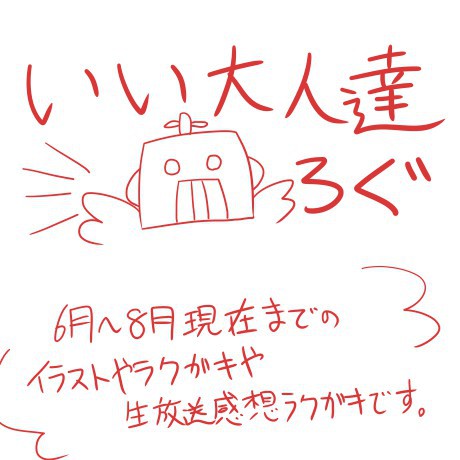 いい大人達
ろぐ
6月〜8月現在までの
イラストやラクガキや
生放送感想ラクガキです。